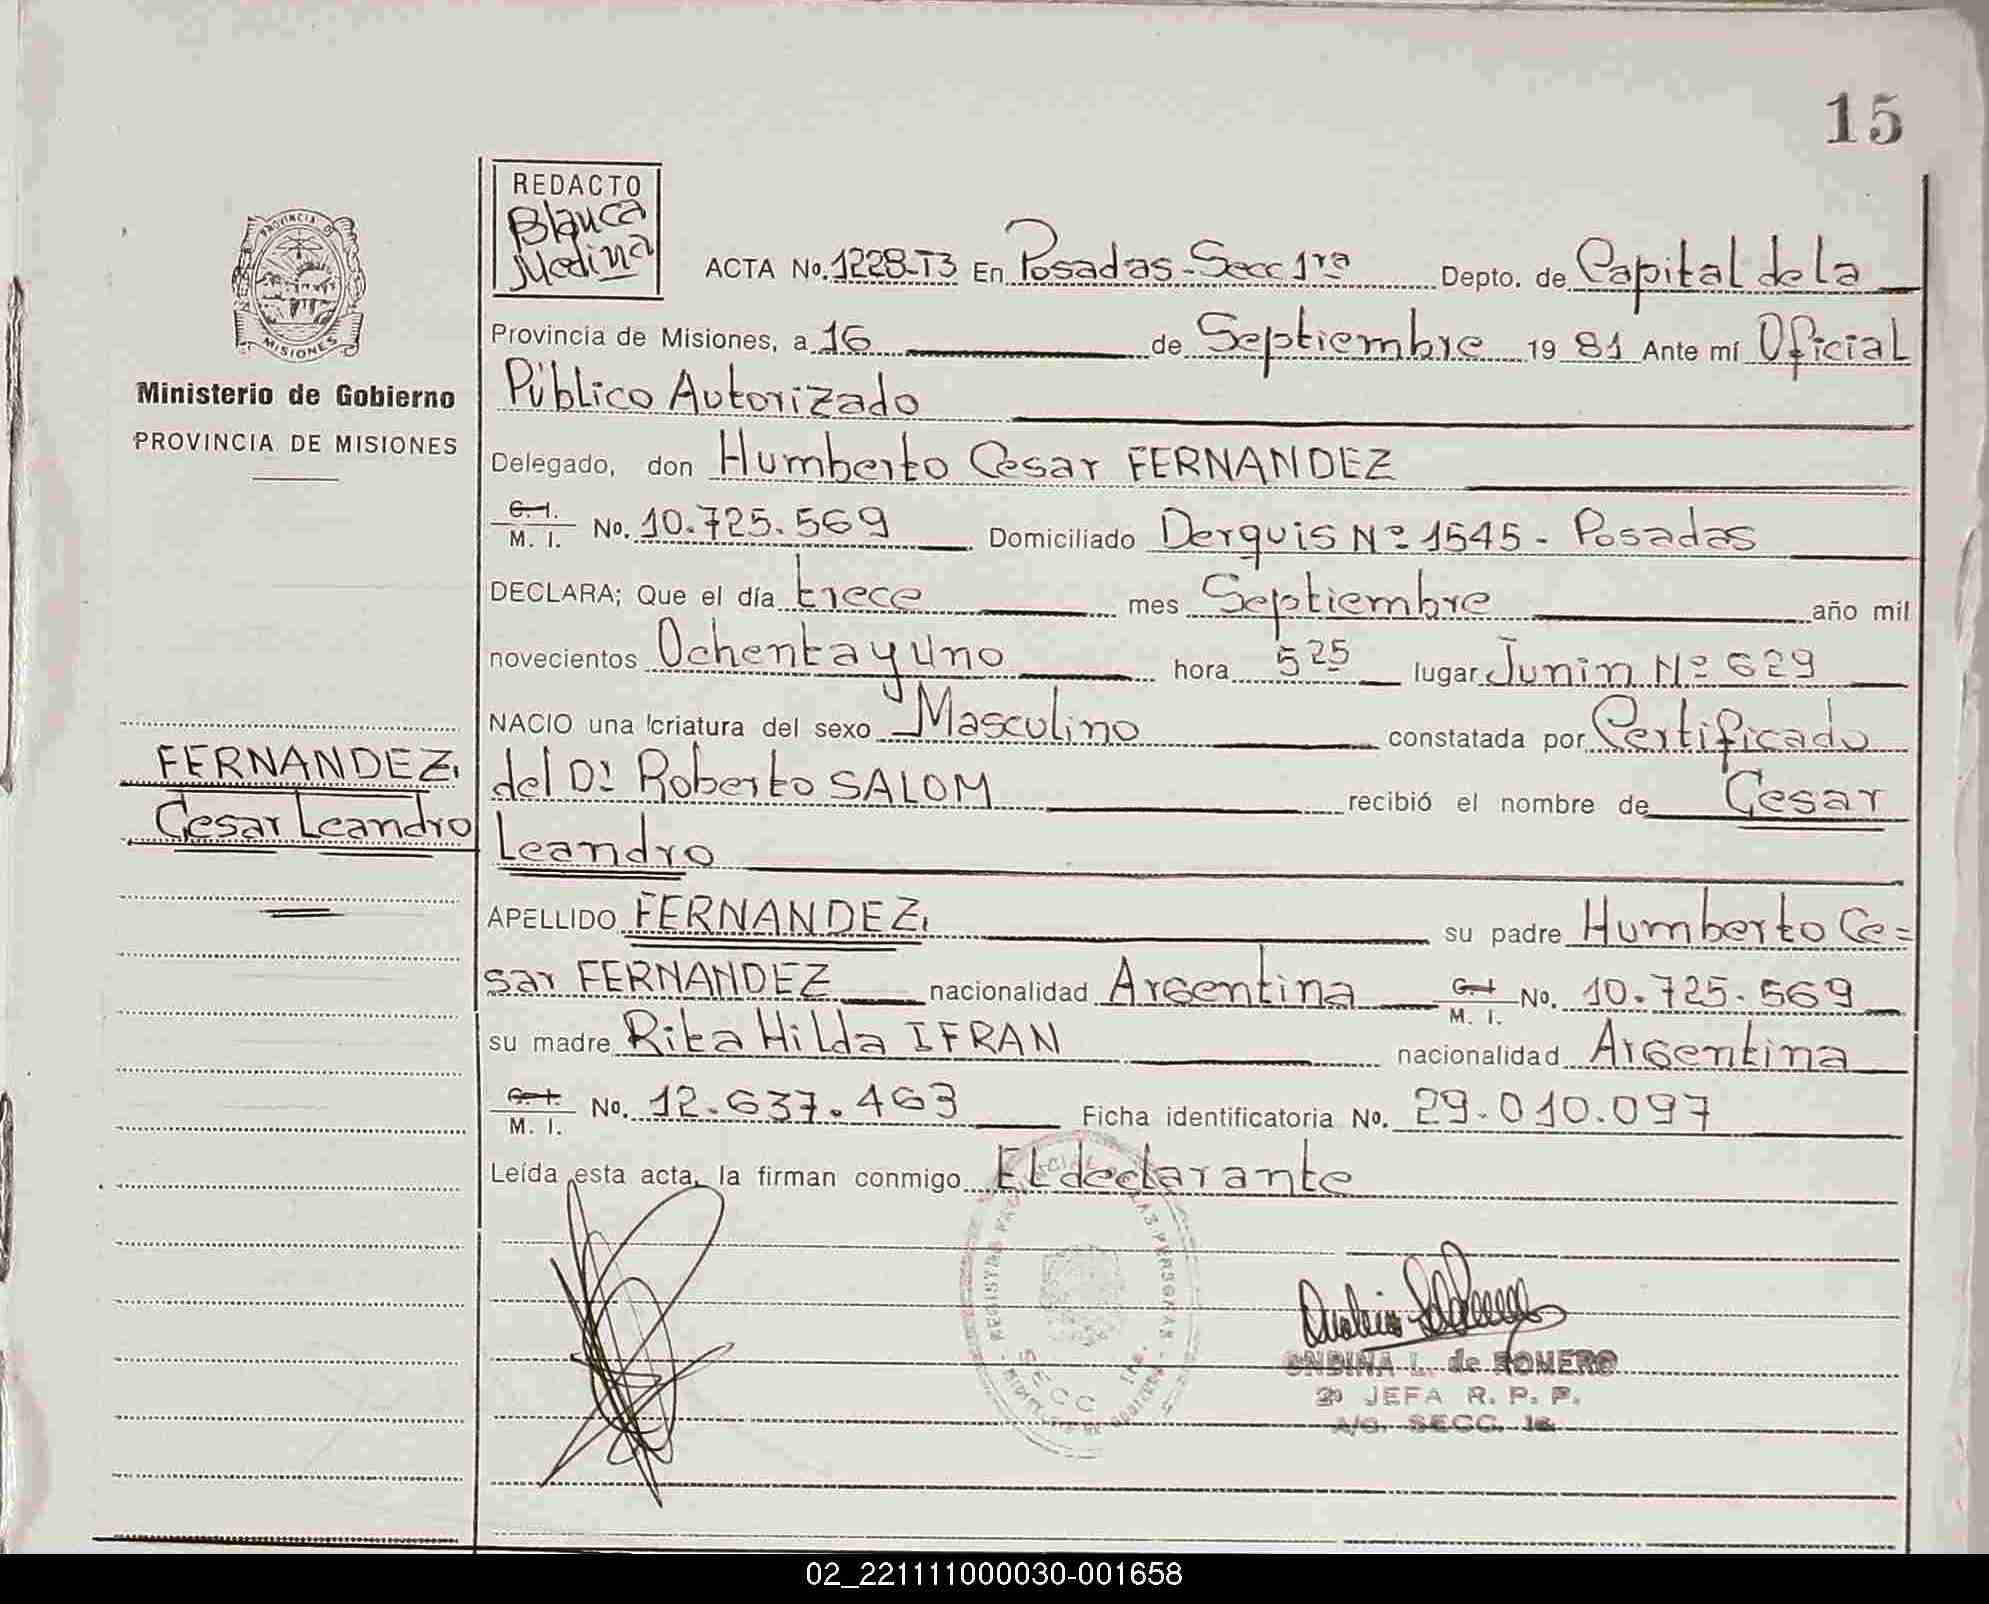 15
PROVINCIA DE
MISIONES
Ministerio de Gobierno
PROVINCIA DE MISIONES
FERNANDEZ,
Cesar Leandro
REDACTO
Blanca
Medina
ACTA No. 1228-T3 En Posadas-Secc 1ra Depto. de Capital de la
Provincia de Misiones, a 16 de Septiembre 19 81 Ante mí Oficial
Público Autorizado
Delegado, don Humberto Cesar FERNANDEZ
C. I.
M. I. No. 10.725.569 Domiciliado Derquis Nº 1545 - Posadas
DECLARA; Que el día trece mes Septiembre año mil
novecientos Ochenta y Uno hora 5 25 lugar Junin Nº 629
NACIO una criatura del sexo Masculino constatada por Certificado
del Dr Roberto SALOM recibió el nombre de Cesar
Leandro
APELLIDO FERNANDEZ, su padre Humberto Ce=
sar FERNANDEZ nacionalidad Argentina C. I. M. I. No. 10.725.569
su madre Rita Hilda IFRAN nacionalidad Argentina
C. I.
M. I. No. 12.637.463 Ficha identificatoria No. 29.010.097
Leída esta acta, la firman conmigo El declarante
SECC 1ra.
ONDINA L. de ROMERO
2ª JEFA R. P. P.
A/C. SECC. 1a.
02_221111000030-001658